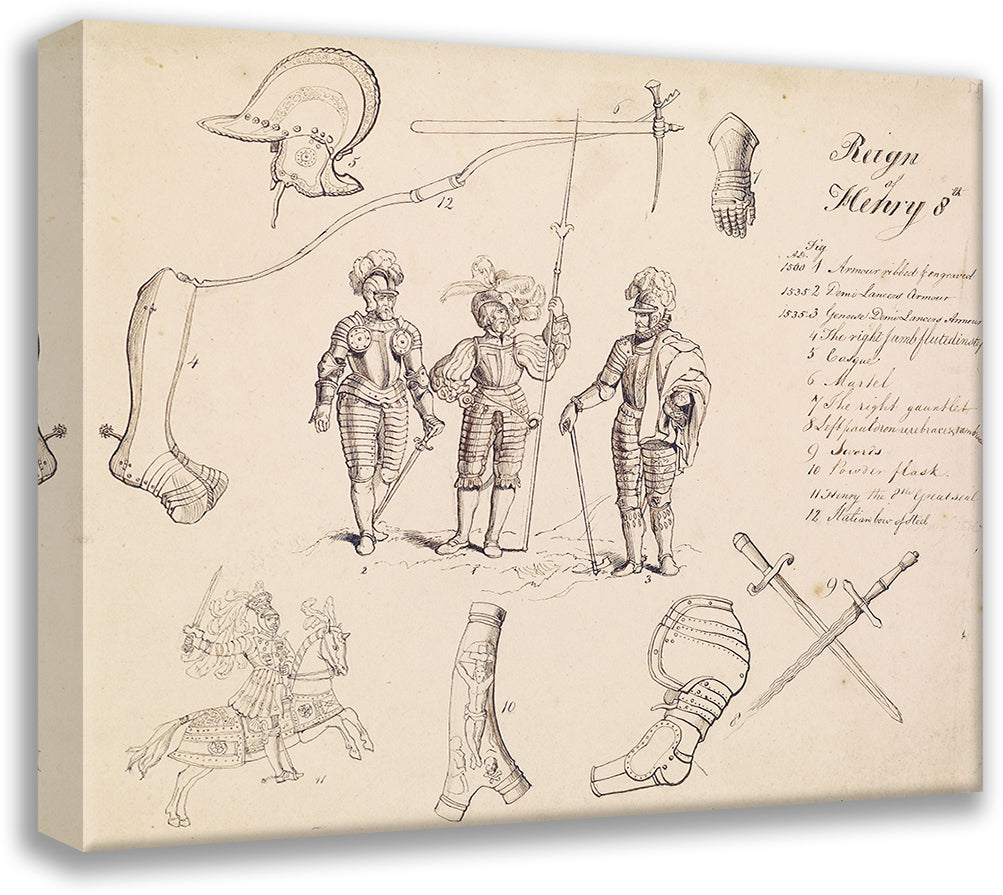 Reign
of
Henry 8th
Fig
A.D.
1500 1 Armour ribbed & engraved
1535 2 Demi Lancers Armour
1535 3 Genoese Demi Lancers Armour
4 The right jamb fluted
5 Casque
6 Martel
7 The right gauntlet
8 Left pauldron rerebrace &
9 Swords
10 Powder flask.
11 Henry the 8th Great seal
12 Italian bow of Steel
5
6
7
12
4
2
1
3
9
8
10
11